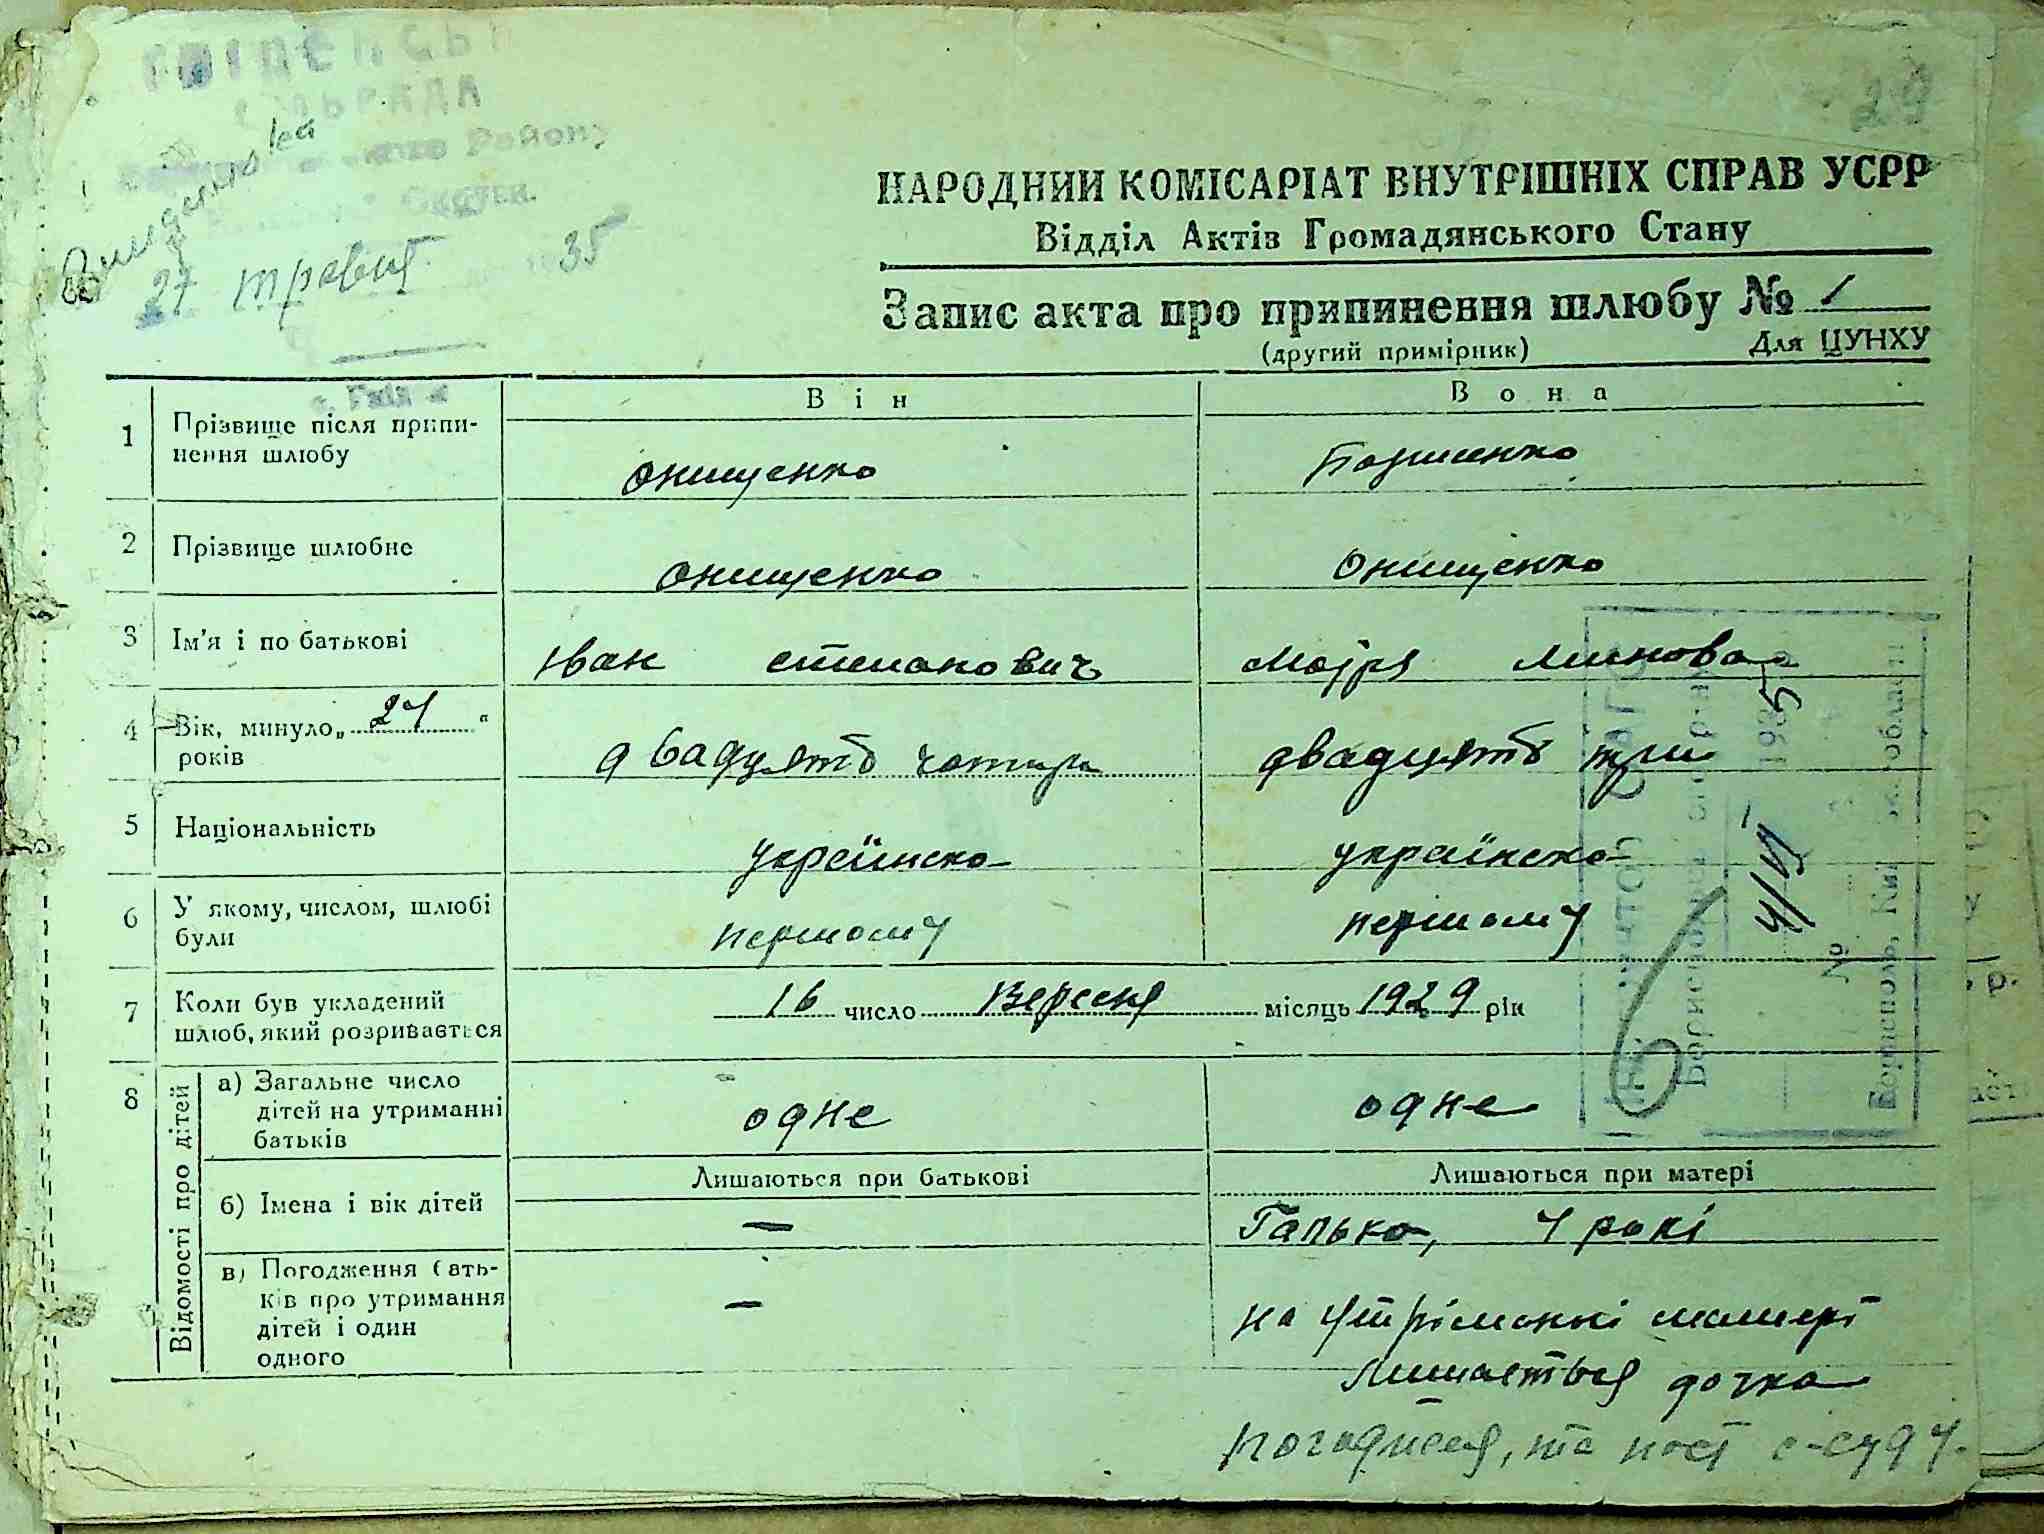 29
сільрада
Району
Округи
27 травня 35
НАРОДНИЙ КОМІСАРІАТ ВНУТРІШНІХ СПРАВ УСРР
Відділ Актів Громадянського Стану
Запис акта про припинення шлюбу № 1
(другий примірник) Для ЦУНХУ
Він Вона
1 Прізвище після припи-
нення шлюбу
Онищенко
2 Прізвище шлюбне Онищенко Онищенко
3 Ім'я і по батькові Іван степанович
4 Вік, минуло „ 24 “
років
двадцять чотири двадцять три
5 Національність українська українська
6 У якому, числом, шлюбі
були
першому першому
7 Коли був укладений
шлюб, який розривається
16 число Вересня місяць 1929 рік
8 Відомості про дітей
а) Загальне число
дітей на утриманні
батьків
одне одне
Лишаються при батькові Лишаються при матері
б) Імена і вік дітей — Галька, 4 рокі
в) Погодження бать-
ків про утримання
дітей і один
одного
— на утріманні матері
лишається дочка
1935
4/VI
№
Бориспіль, Київ області